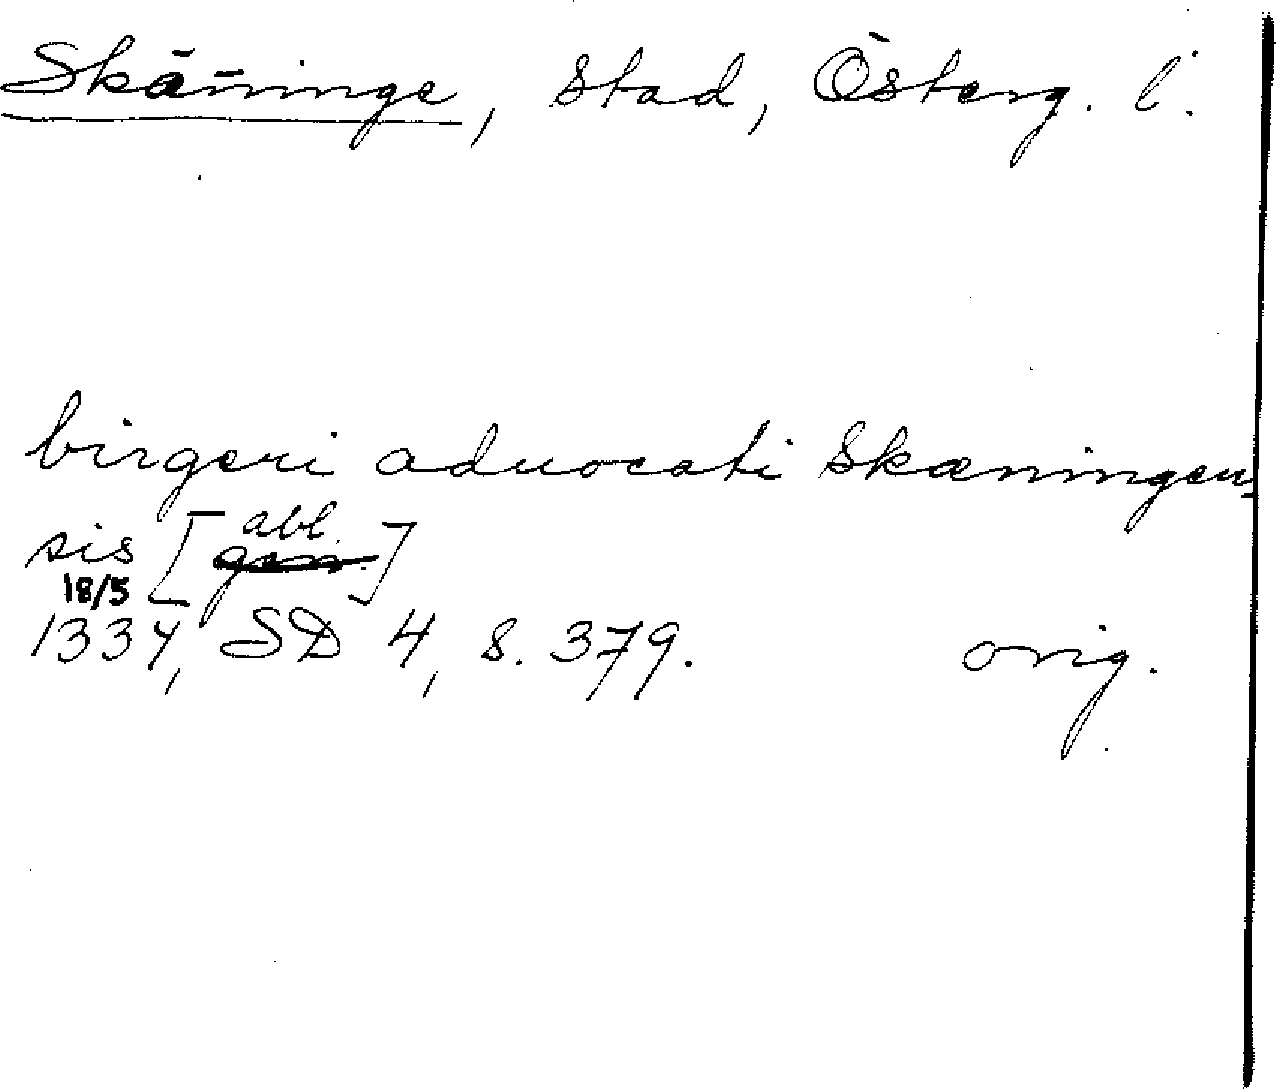 Skänninge, stad, Österg. l.
birgeri aduocati Skæningen-
sis [abl.]
18/5
1334, SD 4, s. 379. orig.